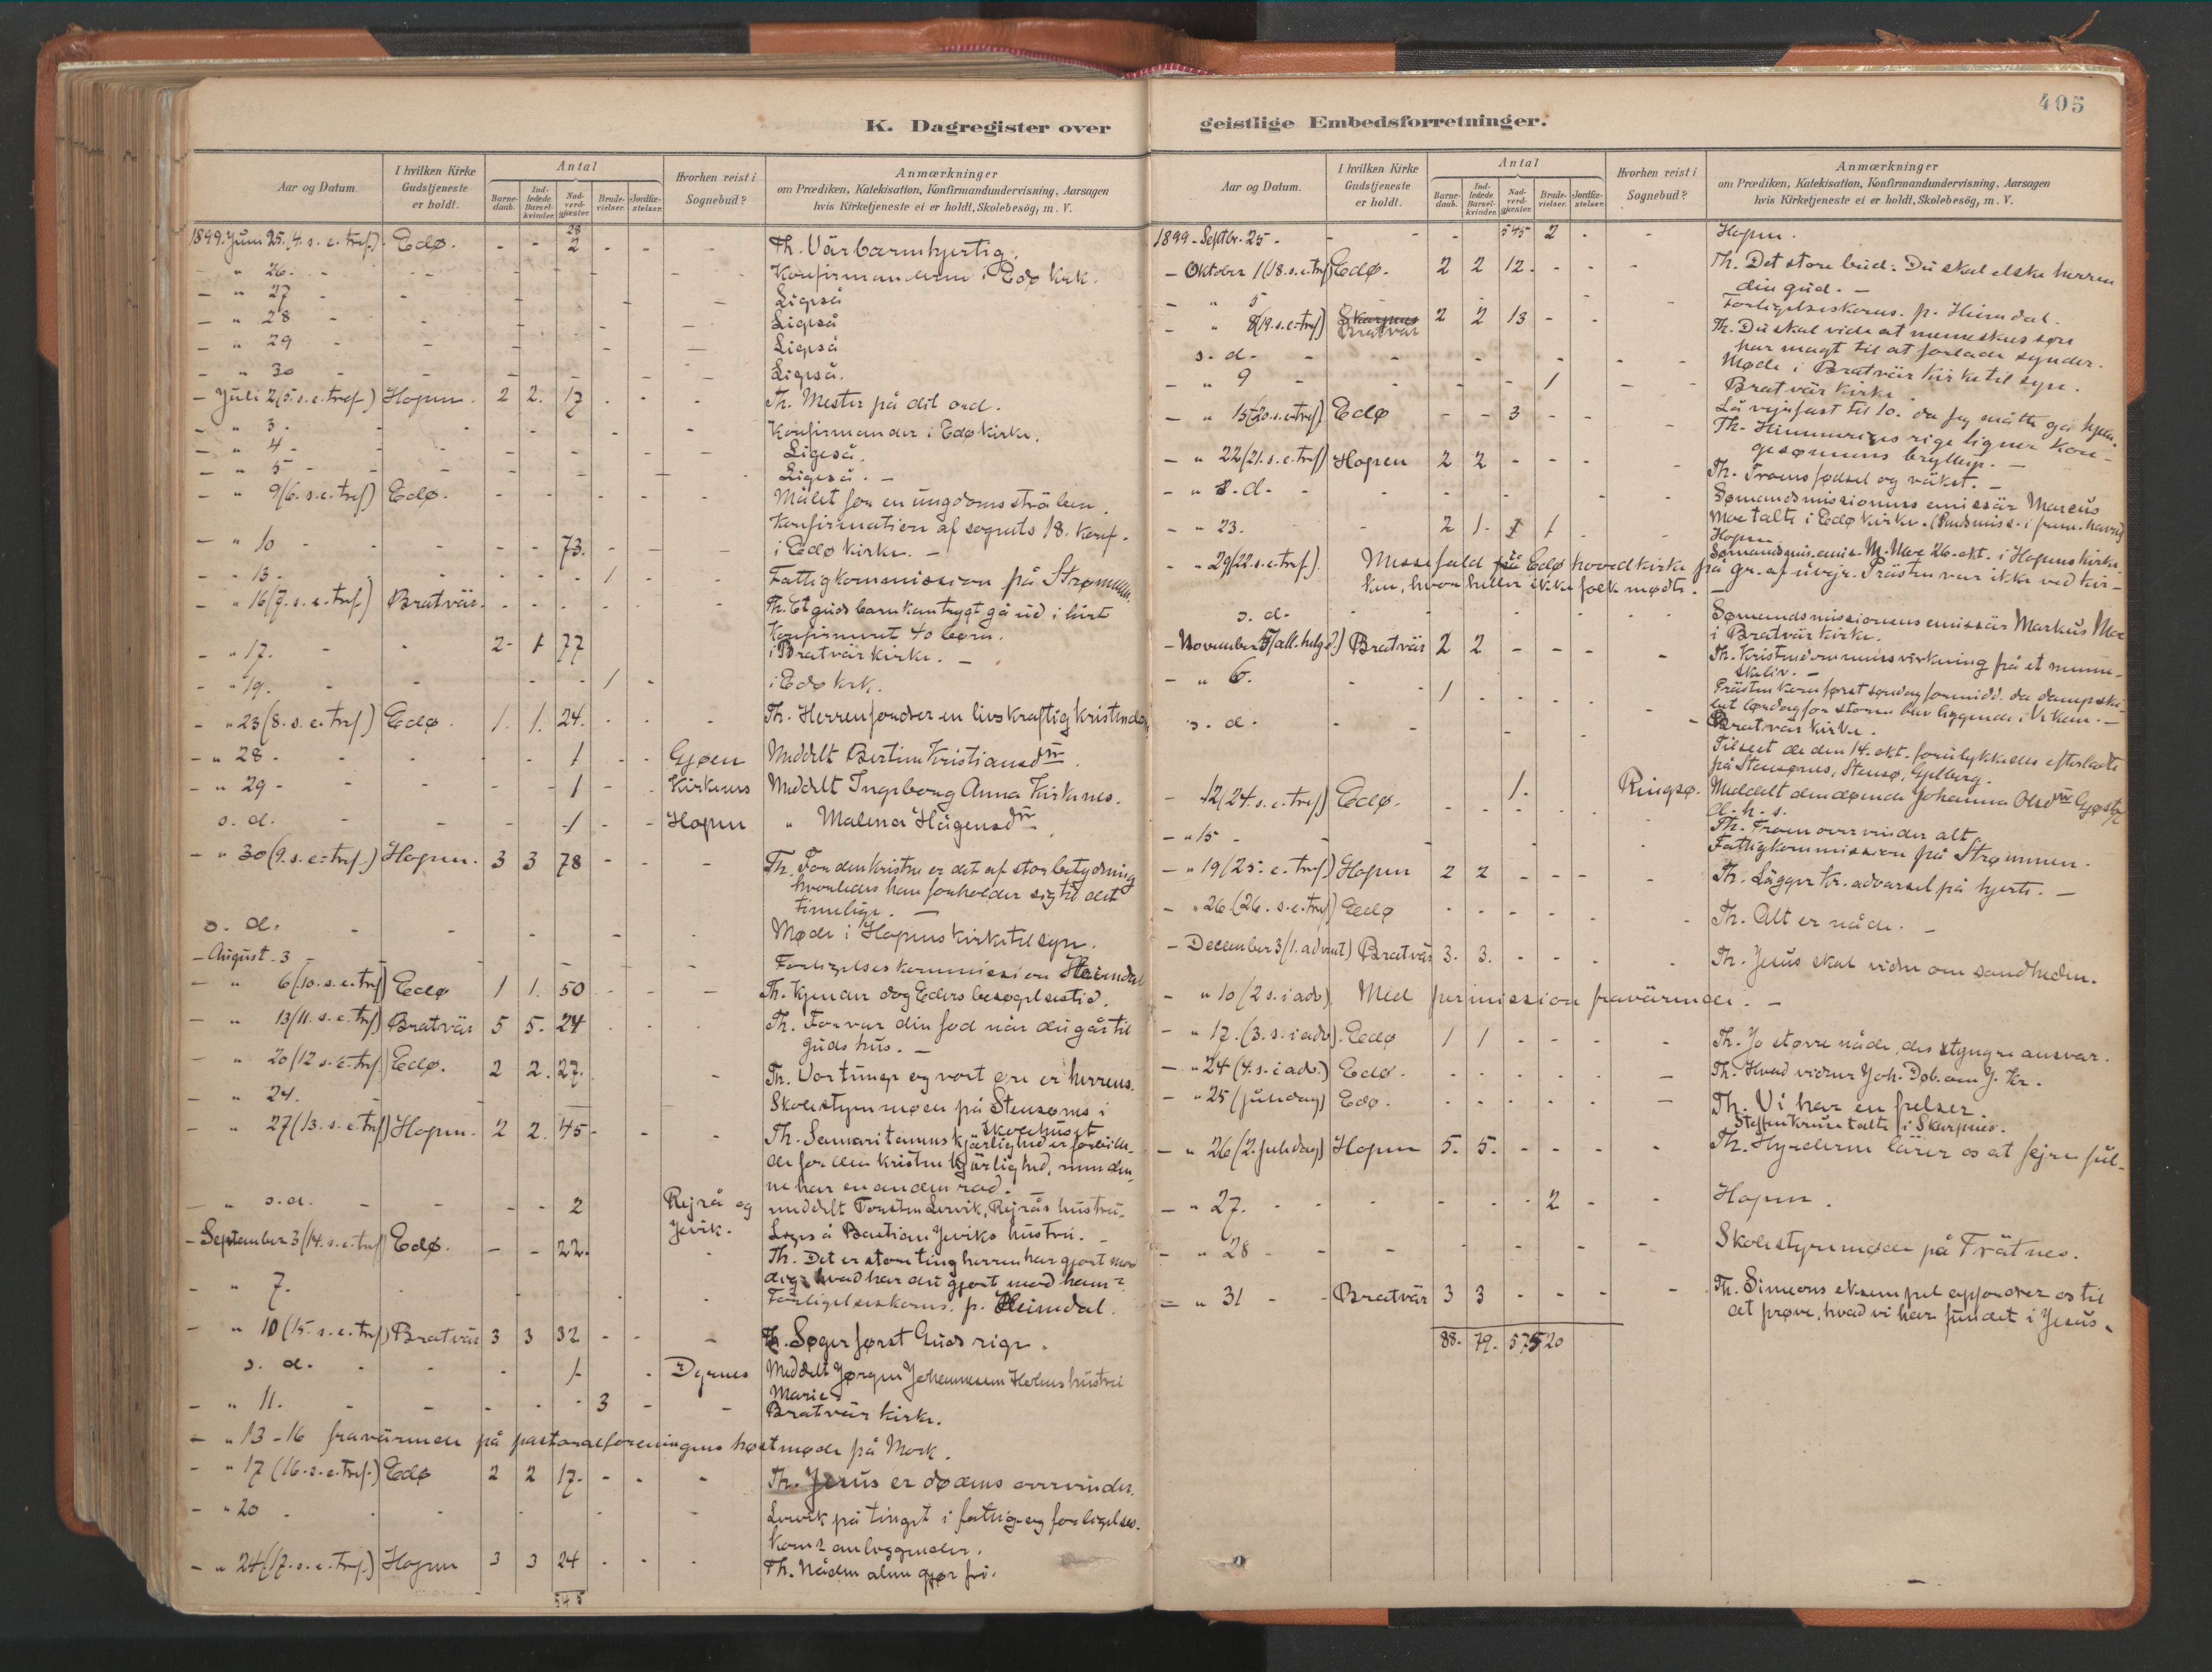 405
K. Dagregister over
Aar og Datum. I hvilken Kirke Gudstjeneste er holdt. Antal Barne-daab. Ind-ledede Barsel-kvinder. Nad-verd-gjæster. Brude-vielser. Jordfæ-stelser. Hvorhen reist i Sognebud? Anmærkninger
om Prædiken, Katekisation, Konfirmandundervisning, Aarsagen
hvis Kirketjeneste ei er holdt, Skolebesög, m. V.
28
1899. Juni 25. (4. s. e. tref.) Edø. - - 2 - - - Th. Vär barmhjertig.
- " 26. - Konfirmanderne i Edø kirk.
- " 27 - Ligeså
- " 28 - Ligeså
- " 29 - Ligeså
- " 30 - Ligeså.
- Juli 2 (5. s. e. tref.) Hopen. 2 2. 17 - - - Th. Mester på dit ord.
- " 3. - Konfirmander i Edø kirke.
- " 4. - Ligeså.
- " 5 - Ligeså. -
- " 9 (6. s. e. tref) Edø. - Målet for en ungdoms stråben.
Konfirmation af sognets 18. konf.
- " 10 - - - 73. - - - i Edø kirke. -
- " 13. - 1 - Fattigkommission på Strømmen.
- " 16 (7. s. e. tref.) Bratvär. - Th. Et guds barn kan trygt gå ud i livet
Konfirmeret 40 børn.
- " 17. - 2- 1 77 i Bratvär kirke. -
- " 19. - 1 - i Edø krk.
- " 23 (8. s. e. tref) Edø. 1. 1. 24. - - - Th. Herren fordrer en livskraftig kristendom
- " 28. - 1 - - Gjøen Meddelt Bertine Kristiansdtr.
- " 29 - 1 - - Kirknes Meddelt Ingeborg Anna Kirknes.
s. d. - 1 - - Hopen " Malena Hågensdtr.
- " 30 (9. s. e. tref.) Hopen. 3 3 78 - - - Th. For den kristne er det af stor betydning
hvorledes han forholder sig til det
timelige. -
s. d. - Møde i Hopens kirketilsyn.
- August. 3 - Forligelseskommission Heimdal
- " 6 (10. s. e. tref) Edø 1 1. 50 - - - Th. Kjender dog Eders besøgelsestid.
- " 13 (11. s. e. tref) Bratvär 5 5. 24 - - - Th. Forvar din fod når du går til
Guds hus. -
- " 20 (12 s. e. tref.) Edø. 2 2. 27. - Th. Vor tunge og vort øre er herrens.
- " 24. - Skolestyremøder på Stensønes i
skolehuset
- " 27 (13. s. e. tref) Hopen. 2 2. 45 - - - Th. Samaritanens kjärlighed er forbille-
de for den kristne kjärlighed, men den-
ne har en anden rod. -
- " s. d. - 2 Rejrå og Jevik. meddelt Torsten Lervik, Rejrås hustru.
Ligeså Bastian Jeviks hustru. -
- September 3 (14. s. e. tref) Edø. - - 22. - Th. Det er store ting herren har gjort mod
dig; hvad har du gjort mod ham?
- " 7. - Forligelseskoms. p. Heimdal.
- " 10 (15. s. e. tref) Bratvär 3 3 32 - - - Th. Søger først Guds rige.
s. d. - 1 - Dyrnes Meddelt Jørgen Johannesen Holms hustru
Marie.
- " 11. - 3 - - Bratvär kirke.
- " 13-16 fraværende på pastoralforeningens høstmøde på Mork.
- " 17 (16. s. e. tref.) Edø 2 2 17. - - - Th. Jesus er dødens overvinder.
- " 20 - Lervik på tinget i fattig og forligelses-
koms anliggender.
- " 24. (17. s. e. tref.) Hopen 3 3 24 - - - Th. Nåden alene gjør fri.
545
geistlige Embedsforretninger.
Aar og Datum. I hvilken Kirke Gudstjeneste er holdt. Antal Barne-daab. Ind-ledede Barsel-kvinder. Nad-verd-gjæster. Brude-vielser. Jordfæ-stelser. Hvorhen reist i Sognebud? Anmærkninger
om Prædiken, Katekisation, Konfirmandundervisning, Aarsagen
hvis Kirketjeneste ei er holdt, Skolebesög, m. V.
1899 - Septbr. 25 - - - 545 2 - - Hopen.
- Oktober 1 (18. s. e. tref) Edø. 2 2 12. - - - Th. Det store bud: Du skal elske herren
din gud. -
- " 5 - Forligelseskoms. p. Heimdal.
- " 8 (19. s. e. tref) Skarpnes Bratvär 2 2 13 - - Th. Du skal vide at menneskens søn
har magt til at forlade synder.
s. d. - Møde i Bratvär kirketilsyn.
- " 9 - 1 - - Bratvär kirke.
Lå vejrfast til 10. da jeg måtte gå hjem.
- " 15 (20. s. e. tref) Edø - - 3 - - - Th. Himmeriges rige ligner kon-
gesønnens bryllup. -
- " 22 (21. s. e. tref) Hopen 2 2 - - - - Th. Troens fødsel og väkst. -
- " s. d. - Sømandsmissionens emissär Marcus
Moe talte i Edø kirke.
- " 23. 2 1. 1 1 - - Hopen.
Sømandsmis. emis. M. Moe 26. okt. i Hopens kirke.
- " 29 (22. s. e. tref). Messefald fra Edø hovedkirke på gr. af uvejr. Prästen var ikke ved kir-
ken, hvor heller ikke folk mødte. -
s. d. - Sømandsmissionens emissär Markus Moe
i Bratvär kirke.
- November 5 (all. helg. d.) Bratvär 2 2 - - - - Th. Kristendommens virkning på et menne-
skeliv. -
Prästen kom først søndag formidd. da dampski-
bet lørdag for storm blev liggende i Viken. -
- " 6. - 1 - Bratvär kirke.
s. d. - Tilseet de den 14. okt. forulykkedes efterladte
på Stensønes, Stensø, Gjelberg.
- 12 (24. s. e. tref) Edø. - 1. Ringsø. Meddelt den døende Johanna Olsdtr Gjøstø
d. h. s.
Th. Troen overvinder alt.
- " 15 - Fattigkommission på Strømmen.
- " 19 (25. e. tref.) Hopen 2 2 - - - - Th. Lägger Kr. advarsel på hjerte. -
- " 26. (26. s. e. tref) Edø - Th. Alt er nåde. -
- December 3 (1. advent) Bratvär 3. 3. - - - - Th. Jesus skal vidne om sandheden.
- " 10 (2 s. i adv). Med permission fraværende. -
- " 17. (3. s. i adv). Edø 1 1 - - - - Th. Jo større nåde, des tyngre ansvar.
- " 24 (4. s. i adv.) Edø. - Th. Hvad vidner Joh. Døb. om J. Kr.
- " 25 (juledag) Edø. - Th. Vi har en frelser.
Steffen Kruse talte i Skarpnes.
- " 26 (2. juledag) Hopen 5. 5. - - - - Th. Hyrderne lärer os at fejre jul.
- " 27. - 2 - - Hopen.
- " 28 - Skolestyremøde på Trätnes.
- " 31 - Bratvär 3 3 - - - - Th. Simeons eksempel opfordrer os til
at prøve, hvad vi har fundet i Jesus.
88. 79. 575 20